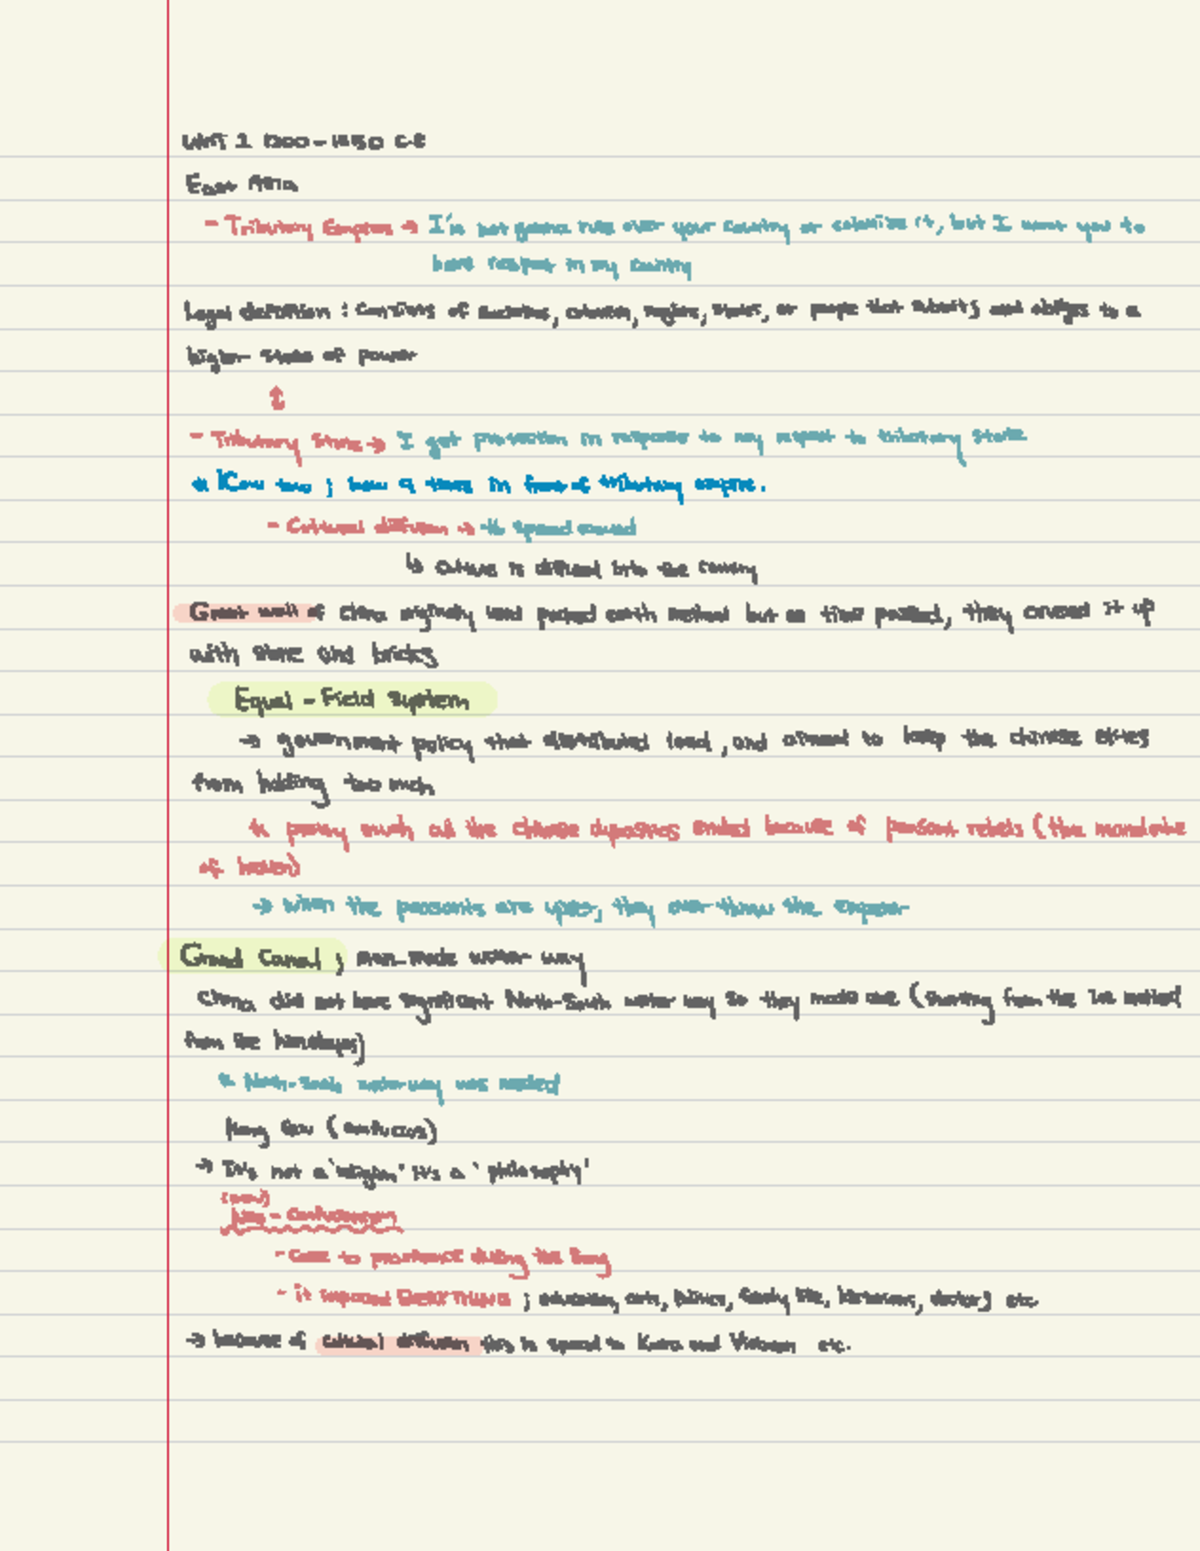 Unit 1 1200-1450 C.E
East Asia
- Tributary Empires → I'm not gonna rule over your country or colonize it, but I want you to
have respect in my country
Legal definition : Consists of societies, colonies, regions, states, or people that submits and obliges to a
higher state of power
↕
- Tributary State → I get protection in response to my respect to tributary state
* Kow tow ; bow 9 times in front of tributary empire.
- Cultural diffusion → * spread around
↳ culture is diffused into the country
Great wall of china originally used packed earth method but as time passed, they covered it up
with stone and bricks
Equal - Field System
→ government policy that distributed land, and aimed to keep the chinese elites
from holding too much
* pretty much all the chinese dynasties ended because of peasant rebels (the mandate
of heaven)
→ When the peasants are upset, they over-threw the emperor
Grand Canal ; man-made water way
China did not have significant North-South water way so they made one (starting from the
from the
* North-South water-way was needed
Kong (confucius)
→ It's not a 'religion' it's a 'philosophy'
(new)
Neo - Confucianism
- Came to prominence during the Song
- it impacted EVERYTHING ; education, arts, politics, family life, etc
→ because of cultural diffusion this is spread to Korea and Vietnam etc.